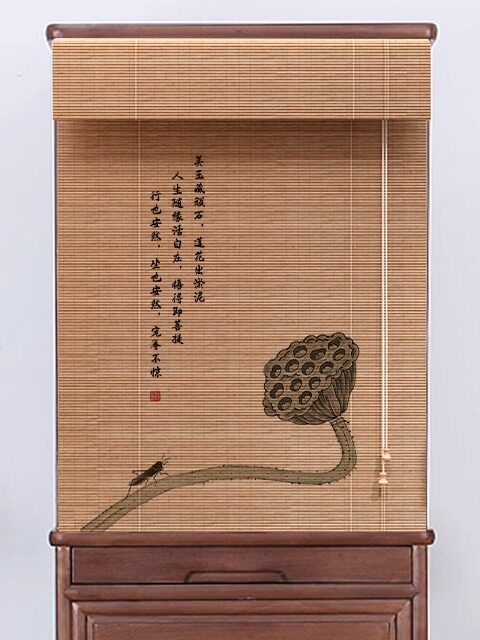 美玉藏顽石，莲花出淤泥
人生随缘活自在，悟得即菩提
行也安然，坐也安然，宠辱不惊